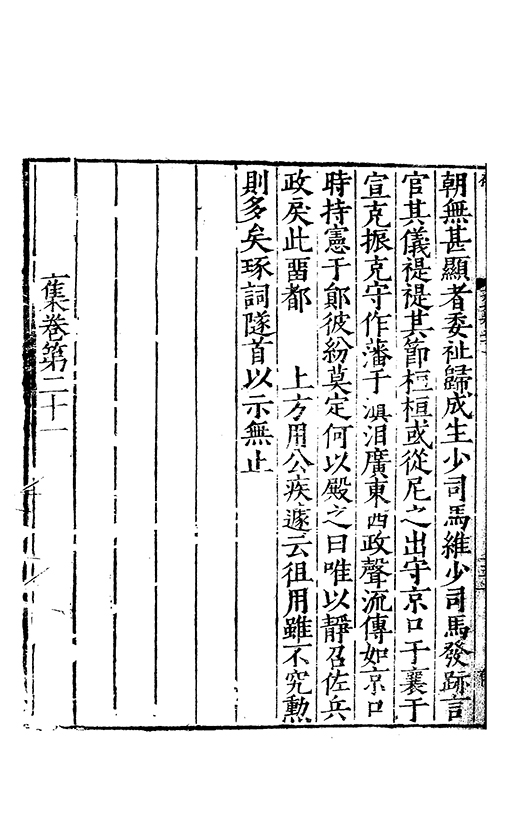 朝無甚顯者委祉歸成生少司馬維少司馬發跡言
官其儀禔禔其節桓桓或從尼之出守京口于襄于
宣克振克守作藩于滇洎廣東西政聲流傳如京口
時持憲于鄖彼紛莫定何以殿之曰唯以靜召佐兵
政戾此畱都　　上方用公疾遽云徂用雖不究勲
則多矣琢詞隧首以示無止
集卷第二十一